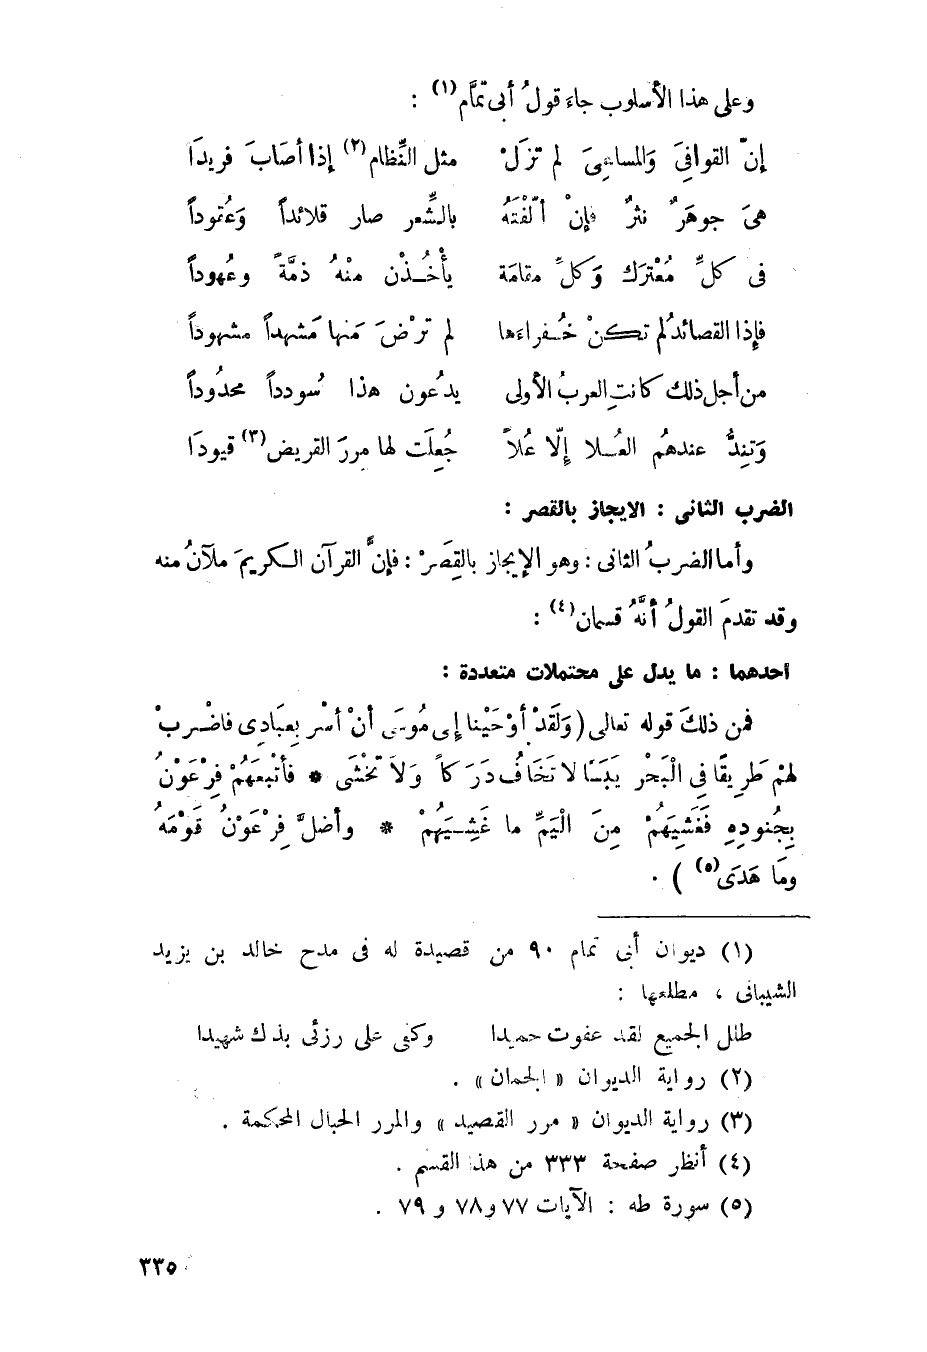 وعلى هذا الأسلوب جاءَ قولُ أبى تمَّام(١) :
إنّ القوافىَ وَالمساعىَ لم تزلْ مثل النِّظام(٢) إذا أصَابَ فريدَا
هىَ جوهَرٌ نثرٌ فإنْ ألّفْتَهُ بالشِّعر صار قلائداً وَعُقوداً
فى كلِّ مُعْتركٍ وَكلِّ مقامَة يأْخُذْن منْهُ ذمَّةً وعُهوداً
فإذا القصائدُ لم تكنْ خُفراءَها لم ترْضَ مَنها مَشهداً مشهوداً
من أجل ذلك كانتِ العربُ الأولى يدْعون هذا سُودداً محدُوداً
وَتنِدُّ عندهمُ العُلا إلّا عُلاً جُعِلَت لها مررَ القريض(٣) قيودَا
الضرب الثانى : الايجاز بالقصر :
وأما الضربُ الثانى : وهو الإيجاز بالقِصَرْ : فإنَّ القرآن الكريمَ ملآنُ منه
وقد تقدمَ القولُ أنَّهُ قسمان(٤) :
احدهما : ما يدل على محتملات متعددة :
فمن ذلكَ قوله تعالى ( وَلَقَدْ أوْحَيْنا إلى مُوسَى أنْ أسْرِ بِعبَادِى فاضْرِبْ
لهمْ طَرِيقًا فِى الْبَحْرِ يَبَسًا لا تَخَافُ دَرَكاً وَلاَ تَخْشَى * فأتْبعَهُمْ فِرْعَوْنُ
بِجُنودِهِ فَغَشِيَهُمْ مِنَ الْيَمِّ ما غَشِيَهُمْ * وأضلَّ فِرْعَوْنُ قَوْمَهُ
ومَا هَدَى(٥) ) .
(١) ديوان أبى تمام ٩٠ من قصيدة له فى مدح خالد بن يزيد
الشيبانى ، مطلعها :
طلل الجميع لقد عفوت حميدا وكفى على رزئى بذك شهيدا
(٢) رواية الديوان « الجمان » .
(٣) رواية الديوان « مرر القصيد » والمرر الحبال المحكمة .
(٤) أنظر صفحة ٣٣٣ من هذا القسم .
(٥) سورة طه : الآيات ٧٧ و٧٨ و ٧٩ .
٣٣٥